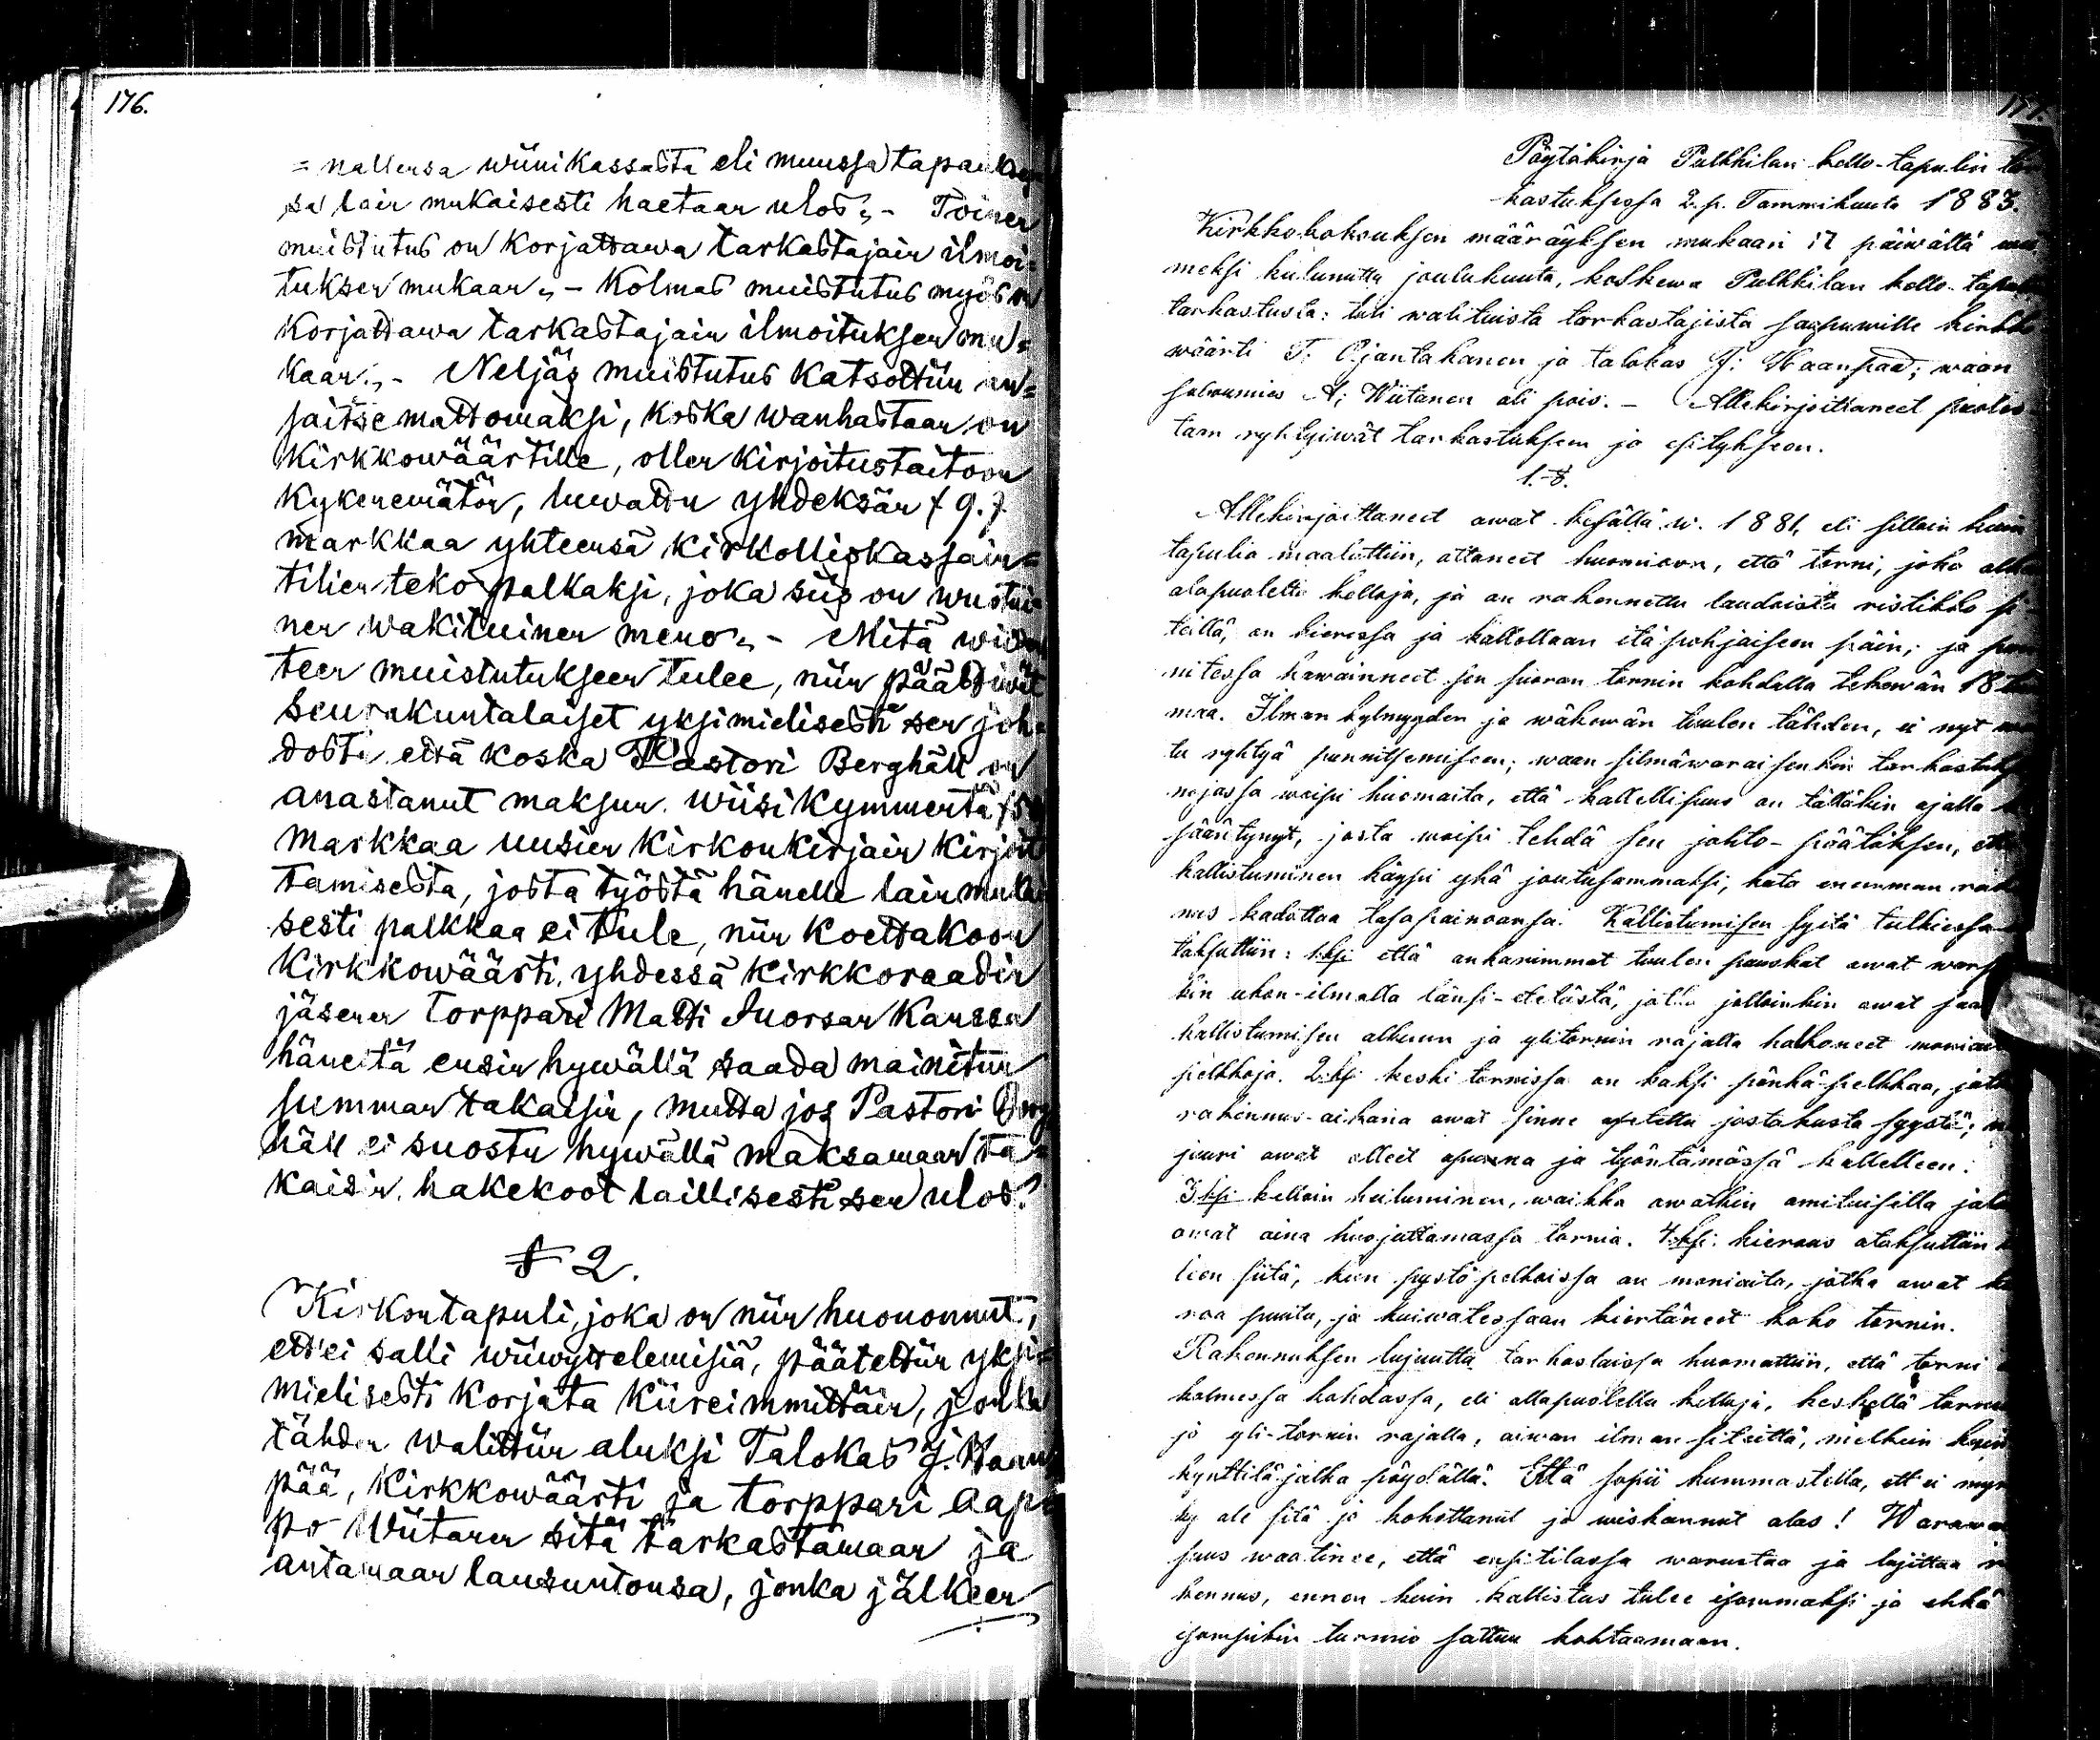 176.
= nallensa wiinikassasta eli muussa tapauksen
sa lain mukaisesti haetaan ulos„ - Toinen
muistutus on korjattawa tarkastajain ilmoi=
tuksen mukaan„ - Kolmas muistutus myös on
korjattawa tarkastajain ilmoituksen mu=
kaan„ - Neljäs muistutus katsottiin an=
saitse mattomaksi, koska wanhastaan on
Kirkkowäärtille, ollen kirjoitustaitoon
kykenemätön, luwattu yhdeksän (9.)
markkaa yhteensä kirkolliskassain=
tilien teko palkaksi, joka siis on wuotui=
nen wakituinen meno„ - Mitä wiiden
teen muistutukseen tulee, niin päättiwät
seurakuntalaiset yksimielisesti sen joh=
dosti että koska Pastori Berghäll on
anastanut maksun wiisikymmentä (50
markkaa uusien kirkonkirjain kirjoit
tamisesta, josta työstä hänelle lain mukai
sesti palkkaa ei tule, niin koettakoon
Kirkkowäärti, yhdessä kirkkoraadin
jäsenen torppari Matti Juorsan kanssa
häneltä ensin hywällä saada mainitun
summan takaisin, mutta jos Pastori Berg
häll ei suostu hywällä maksamaan ta=
kaisin, hakekoot laillisesti sen ulos.
§ 2.
Kirkontapuli, joka on niin huonontunut,
ett'ei salli wiiwyttelemisiä, päätettiin yksi=
mielisesti korjata kiireimmittäin, jonka
tähden walittiin aluksi Talokas J. Haan
pää, Kirkkowäärti ja torppari Aap=
po Wiitanen sitä tarkastamaan ja
antamaan lausuntonsa, jonka jälkeen
177.
Pöytäkirja Pulkkilan kello-tapulin tar
-kastuksessa 2. p. Tammikuuta 1883.
Kirkkokokouksen määräyksen mukaan 17 päiwältä wii
meksi kulunutta joulukuuta, koskewa Pulkkilan kello-tapulin
tarkastusta: tuli walituista tarkastajista saapuwille kirkko
wäärti T: Ojantakanen ja talokas J: Haanpää; waan
saloumies A: Wiitanen oli pois. - Allekirjoittaneet puoles
taan ryhtyiwät tarkastukseen ja esitykseen.
1. §.
Allekirjoittaneet owat kesällä w. 1881, eli silloin kuin
tapulia maalattiin, ottaneet huomioon, että torni, joka alkaa
alapuolelta kelloja, ja on rakennettu laudoista ristikko si
teillä, on kierossa ja kallollaan itä pohjaiseen päin; ja pun
nitessa hawainneet sen suoran tornin kohdalla tekewän 18
maa. Ilman kylmyyden ja wäkewän tuulen tähden, ei nyt
tu ryhtyä punnitsemiseen; waan silmäwaraisenkin tarkastuk
nojassa woipi huomaita, että kallellisuus on tälläkin ajalla
sääntynyt, josta woipi tehdä sen johto-päätöksen, että
kallistuminen käypi yhä joutusammaksi, kuta enemman raken
nus kadottaa tasapainoansa. Kallistumisen syitä tutkiessa
taksuttiin: 1:ksi että ankarimmat tuulen puuskat owat wars
kin ukon-ilmalla länsi-etelästä, jotka jolloinkin owat saa
kallistumisen alkuun ja ylitornin rajalla halkoneet moniaita
pelkkoja. 2:ksi keski tornissa on kaksi pönkä-pelkkaa, jotka
rakennus-aikana owat sinne asetettu jostakusta syystä;
juuri owat olleet apuna ja työntämässä kallelleen.
3:ksi kelloin heiluminen, waikka owatkin omituisilla jal
owat aina huojuttamassa tornia. 4:ksi kierous otaksuttiin
leen siitä, kun pystö pelkoissa on moniaita, jotka owat
roa puuta, ja kuiwatessaan kiertäneet koko tornin.
Rakennuksen lujuutta tarkastaissa huomattiin, että torni
kolmessa kohdassa, eli allapuolella kelloja, keskellä tornia
ja yli-tornin rajalla, aiwan ilman siteittä, melkein kuin
kynttilä-jalka pöydällä. Että sopii hummastella, ett ei myrs
ky ole sitä jo kohottanut ja wiskannut alas! Warawai
suus waatinee, että ensi tilassa warustaa ja lujittaa ra
kennus, ennen kuin kallistus tulee isommaksi ja ehkä
isompikin turmio sattuu kohtaamaan.